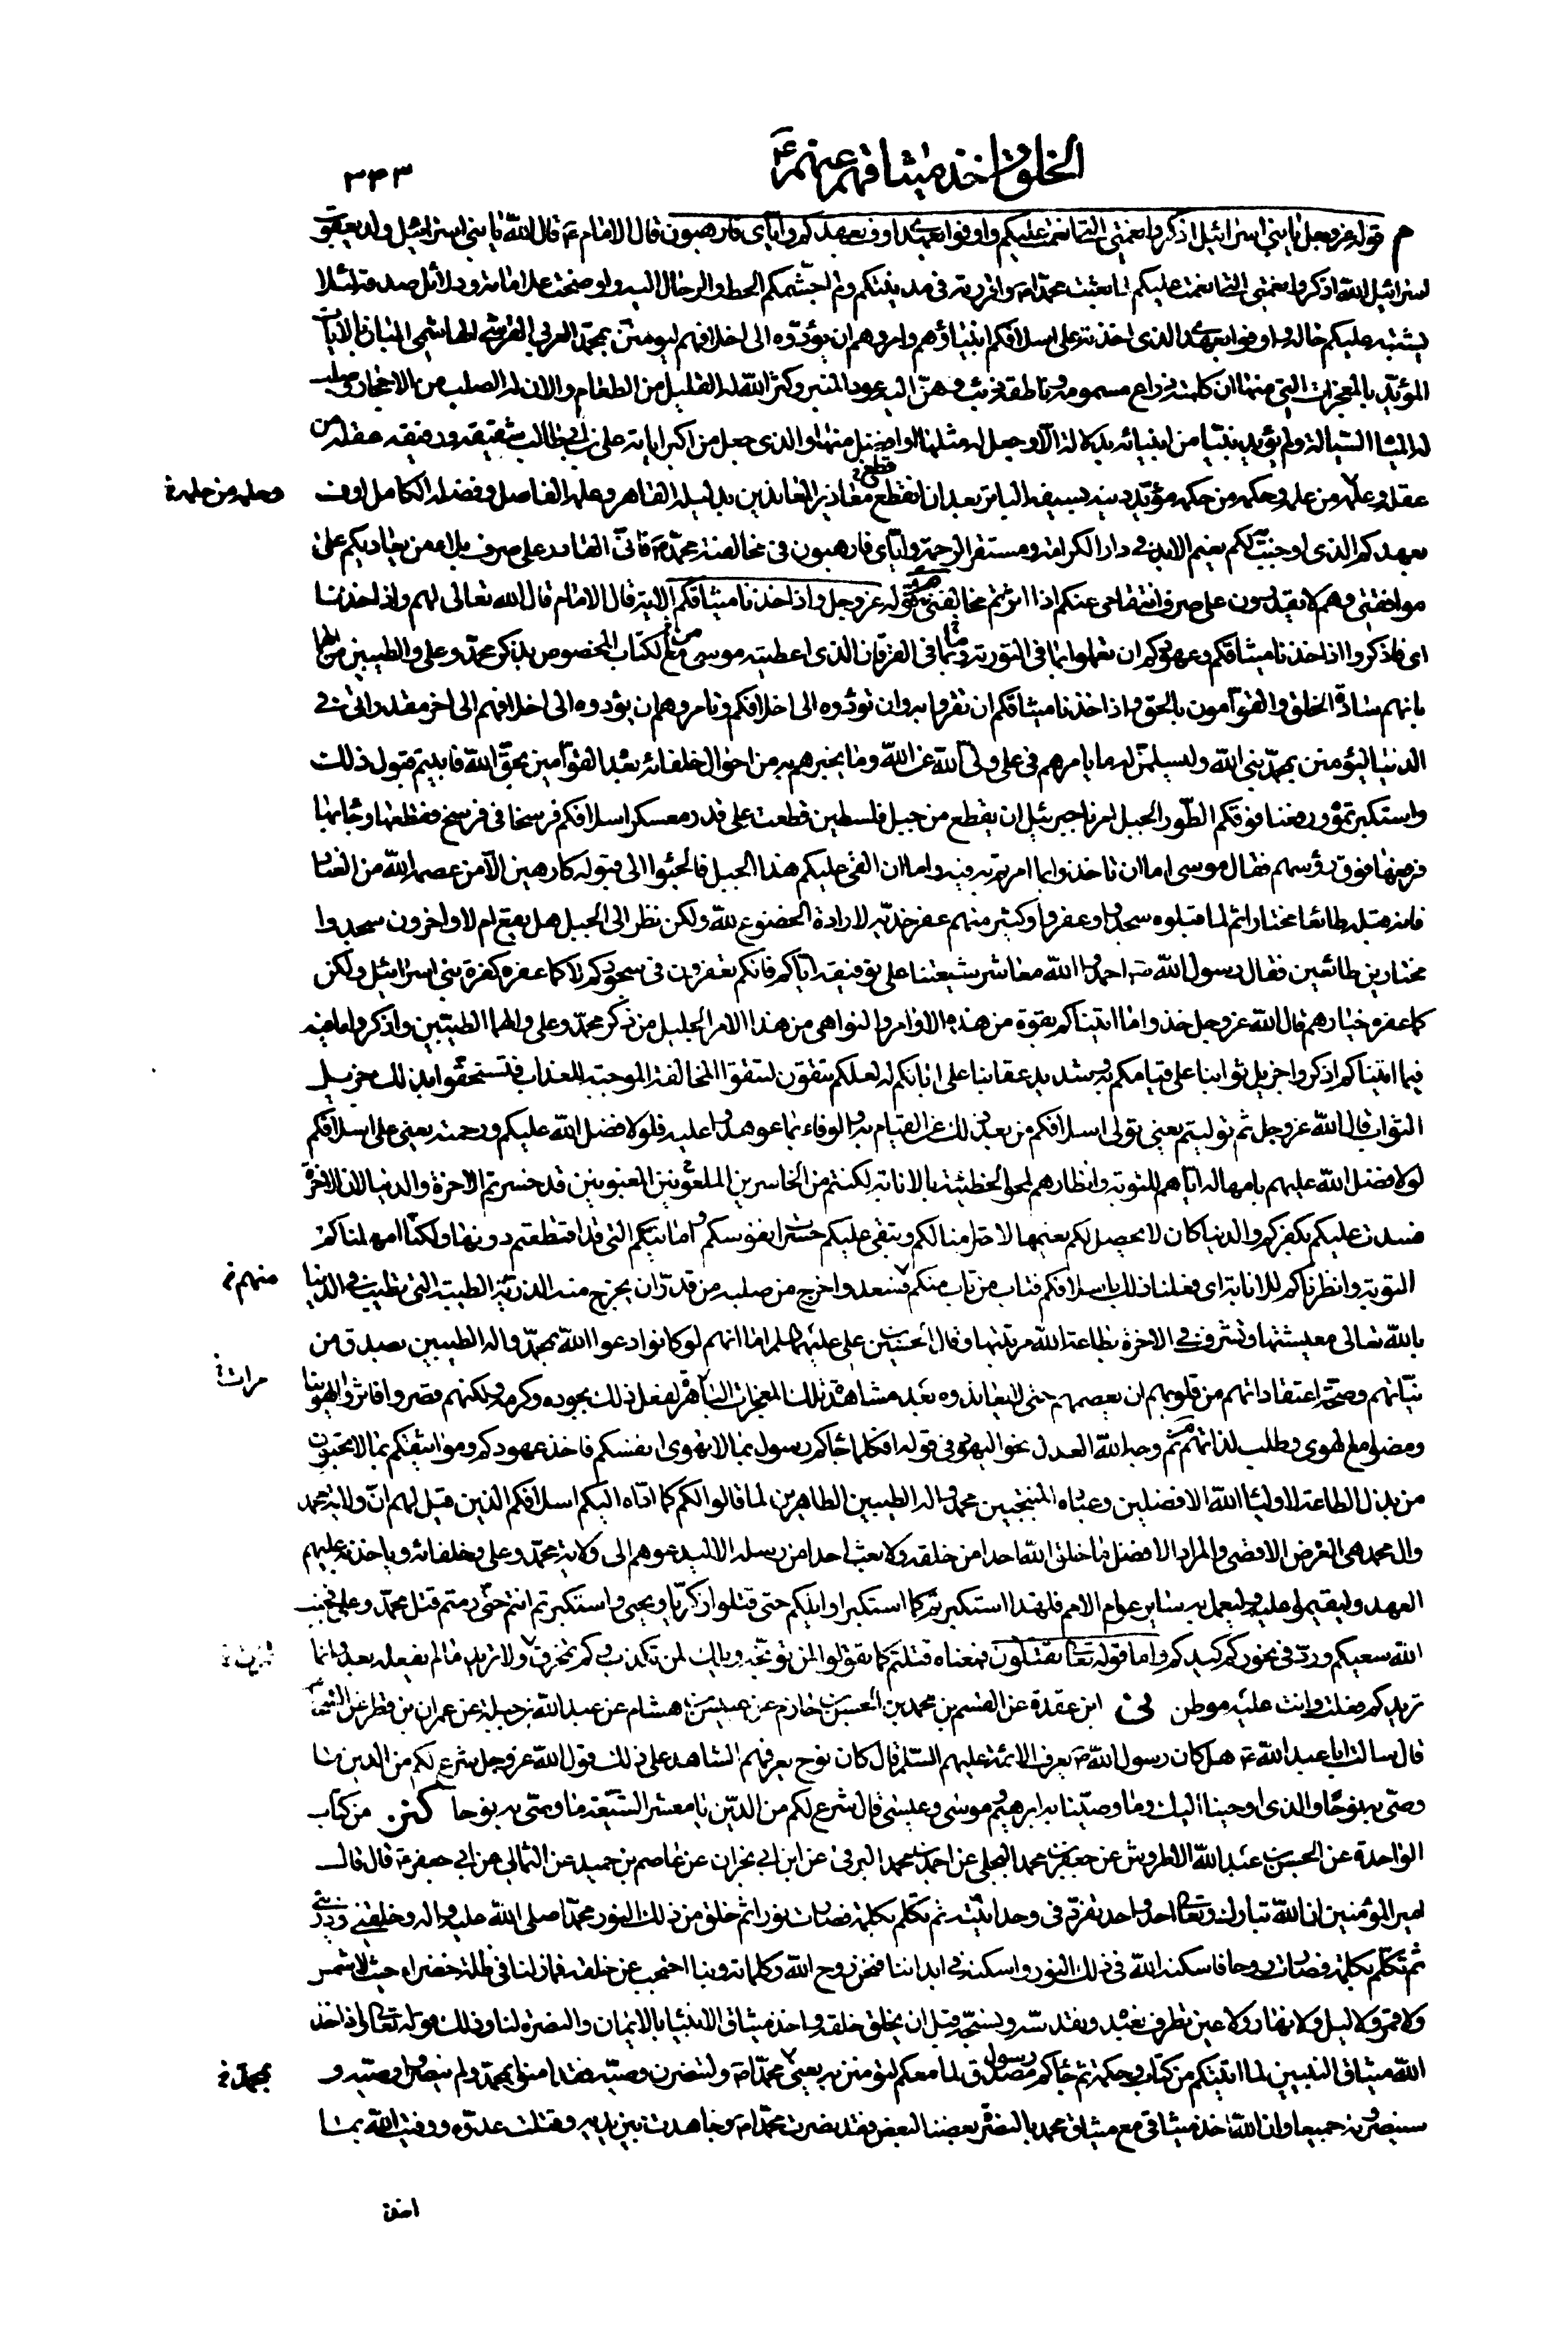 الخلق واخذ ميثاقهم عنهم ع
٣٤٣
م قوله عز وجل يا بني اسرائيل اذكروا نعمتي التي انعمت عليكم واوفوا بعهدي اوف بعهدكم واياي فارهبون قال الامام ع قال الله يا بني اسرائيل ولد يعقوب
اسرائيل الله اذكروا نعمتي التي انعمت عليكم لما بعثت محمدا ص واقررته في مدينتكم ولم اجشمكم الحط والترحال اليه واوضحت علاماته ودلائل صدقه لئلا
يشتبه عليكم حاله واوفوا بعهدي الذي اخذته على اسلافكم انبياؤهم وامروهم ان يؤدوه الى اخلافهم ليؤمنن بمحمد العربي القرشي الهاشمي المبان بالايات
المؤيد بالمعجزات التي منها ان كلمته ذراع مسمومة وناطقه ذئب وحن اليه عود المنبر وكثر الله له القليل من الطعام والان له الصلب من الاحجار وصلب
له المياه السيالة ولم يؤيد نبيا من انبيائه بدلالة الا وجعل له مثلها او افضل منها والذي جعل من اكبر اياته علي بن ابي طالب شقيقه ورفيقه عقله من
عقله وعلمه من علمه وحكمه من حكمه مؤيد دينه بسيفه الباتر بعد ان انقطع معاذير المعاندين بدليله القاهر وعلمه الفاضل وفضله الكامل اوف
قطع
وحلمه من حلمه
بعهدكم الذي اوجبت لكم نعيم الابد في دار الكرامة ومستقر الرحمة واياي فارهبون في مخالفة محمد ص فاني القادر على صرف بلاء من يعاديكم على
موافقتي وهم لا يقدرون على صرف انتقامي عنكم اذا اثرتم مخالفتي قوله عز وجل واذ اخذنا ميثاقكم الاية قال الامام قال الله تعالى لهم واذ اخذنا
اي فاذكروا اذ اخذنا ميثاقكم وعهودكم ان تعملوا بما في التورية وما في الفرقان الذي اعطيته موسى مع الكتاب المخصوص بذكر محمد وعلي والطيبين من الهما
بانهم سادة الخلق والقوامون بالحق واذ اخذنا ميثاقكم ان تقروا به وان تؤدوه الى اخلافكم وتامروهم ان يؤدوه الى اخلافهم الى اخر مقدراتي في
الدنيا ليؤمنن بمحمد نبي الله وليسلمن له ما يامرهم في علي ولي الله عن الله وما يخبرهم به من احوال خلفائه بعده القوامين بحق الله فابيتم قبول ذلك
واستكبرتموه ورفعنا فوقكم الطور الجبل امرنا جبرئيل ان يقطع من جبل فلسطين قطعة على قدر معسكر اسلافكم فرسخا في فرسخ فقطعها وجاء بها
فرفعها فوق رؤسهم فقال موسى اما ان تاخذوا بما امرتم به فيه واما ان القي عليكم هذا الجبل فالجئوا الى قبوله كارهين الا من عصمه الله من العناد
فانه قبله طائعا مختارا ثم لما قبلوه سجدوا وعفروا وكثير منهم عفر خديه لا لارادة الخضوع لله ولكن نظر الى الجبل هل يقع ام لا واخرون سجدوا
مختارين طائعين فقال رسول الله ص احمدوا الله معاشر شيعتنا على توفيقه اياكم فانكم تعفرون في سجودكم لا كما عفره كفرة بني اسرائيل ولكن
كما عفره خيارهم قال الله عز وجل خذوا ما اتيناكم بقوة من هذه الاوامر والنواهي من هذا الامر الجليل من ذكر محمد وعلي والهما الطيبين واذكروا ما فيه
فيما اتيناكم اذكروا جزيل ثوابنا على قيامكم به وشديد عقابنا على ابائكم له لعلكم تتقون لتتقوا المخالفة الموجبة للعذاب فتستحقوا بذلك جزيل
الثواب قال الله عز وجل ثم توليتم يعني تولى اسلافكم من بعد ذلك عن القيام به والوفاء بما عوهدوا عليه فلولا فضل الله عليكم ورحمته يعني على اسلافكم
لولا فضل الله عليهم بامهاله اياهم للتوبة وانظارهم لمحو الخطيئة بالانابة لكنتم من الخاسرين الملعونين المغبونين قد خسرتم الاخرة والدنيا لان الاخرة
فسدت عليكم بكفركم والدنيا كان لا يحصل لكم نعيمها لاخترامنا لكم وتبقى عليكم حسرات نفوسكم وامانيكم التي قد اقتطعتم دونها ولكنا امهلناكم
التوبة وانظرناكم للانابة اي فعلنا ذلك باسلافكم فتاب من تاب منكم فسعد واخرج من صلبه من قدر ان يخرج منه الذرية الطيبة التي تطيب في الدنيا
منهم
بالله تعالى معيشتها وتشرف في الاخرة بطاعة الله مرتبتها وقال الحسين بن علي عليهما السلام اما انهم لو كانوا دعوا الله بمحمد واله الطيبين بصدق من
نياتهم وصحة اعتقاداتهم من قلوبهم ان يعصمهم حتى لا يعاندوه بعد مشاهدة تلك المعجزات الباهرة لفعل ذلك بجوده وكرمه ولكنهم قصروا فاثروا الهوينا
ومضوا مع الهوى في طلب لذاتهم ثم وجه الله العذل نحو اليهود في قوله افكلما جاءكم رسول بما لا تهوى انفسكم فاخذ عهودكم ومواثيقكم بما لا تحبون
من بذل الطاعة لاولياء الله الافضلين وعباده المنتجبين محمد واله الطيبين الطاهرين لما قالوا لكم كما اداه اليكم اسلافكم الذين قيل لهم ان ولاية محمد
وال محمد هي الغرض الاقصى والمراد الافضل ما خلق الله احدا من خلقه ولا بعث احدا من رسله الا ليدعوهم الى ولاية محمد وعلي وخلفائه وياخذ به عليهم
العهد وليقيموا عليه وليعمل به سائر عوام الامم فلهذا استكبرتم كما استكبر اوايلكم حتى قتلوا زكريا ويحيى واستكبرتم انتم حتى رمتم قتل محمد وعلي فخيب
الله سعيكم ورد في نحوركم كيدكم واما قوله تعالى تقتلون فمعناه قتلتم كما تقول لمن توبخه ويلك لم تكذب وكم تخرق ولا تريد ما لم يفعله بعد وانما
تريد كم فعلت وانت عليه موطن نى ابن عقدة عن القسم بن محمد بن الحسن بن حازم عن عبيس بن هشام عن عبد الله بن جبلة عن عمران بن قطر عن الشحام
قال سالت ابا عبد الله ع هل كان رسول الله ص يعرف الائمة عليهم السلام قال كان نوح يعرفهم الشاهد على ذلك قول الله عز وجل شرع لكم من الدين ما
وصى به نوحا والذي اوحينا اليك وما وصينا به ابرهيم وموسى وعيسى قال شرع لكم من الدين يا معشر الشيعة ما وصى به نوحا كنز من كتاب
الواحدة عن الحسن بن عبد الله الاطروش عن جعفر بن محمد البجلي عن احمد بن محمد البرقي عن ابن ابي نجران عن عاصم بن حميد عن الثمالي عن ابي جعفر ع قال قال
امير المؤمنين ان الله تبارك وتعالى احد واحد تفرد في وحدانيته ثم تكلم بكلمة فصارت نورا ثم خلق من ذلك النور محمدا صلى الله عليه واله وخلقني وذريتي
ثم تكلم بكلمة فصارت روحا فاسكنه الله في ذلك النور واسكنه في ابداننا فنحن روح الله وكلماته وبنا احتجب عن خلقه فما زلنا في ظلة خضراء حيث لا شمس
ولا قمر ولا ليل ولا نهار ولا عين تطرف نعبده ونقدسه ونسبحه قبل ان يخلق خلقه واخذ ميثاق الانبياء بالايمان والنصرة لنا وذلك قوله تعالى واذ اخذ
الله ميثاق النبيين لما اتيتكم من كتاب وحكمة ثم جاءكم رسول مصدق لما معكم لتؤمنن به يعني محمدا ص ولتنصرن وصيه فقد امنوا بمحمد ولم ينصروا وصيه و
بمحمد
سينصرونه جميعا وان الله اخذ ميثاقي مع ميثاق محمد بالنصرة بعضنا لبعض فقد نصرت محمدا ص وجاهدت بين يديه وقتلت عدوه ووفيت الله بما
اخذ